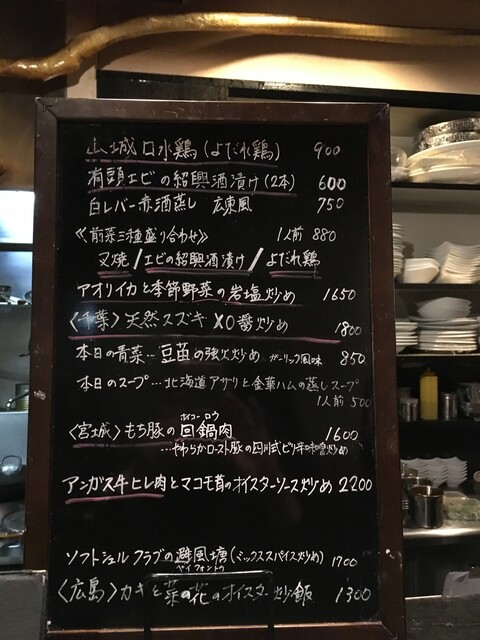 山城口水鶏(よだれ鶏) 900
有頭エビの紹興酒漬け(2本) 600
白レバー赤酒蒸し 広東風 750
《前菜三種盛り合わせ》 1人前 880
叉焼/エビの紹興酒漬け/よだれ鶏
アオリイカと季節野菜の岩塩炒め 1650
〈千葉〉天然スズキ XO醤炒め 1800
本日の青菜…豆苗の強火炒め ガーリック風味 850
本日のスープ…北海道アサリと金華ハムの蒸しスープ
1人前 500
ホイコーロウ
〈宮城〉もち豚の回鍋肉 1600
…やわらかロースト豚の四川式ピリ辛味噌炒め
アンガス牛ヒレ肉とマコモ茸のオイスターソース炒め 2200
ソフトシェルクラブの避風塘(ミックススパイス炒め) 1700
ベイフォントウ
〈広島〉カキと菜の花のオイスター炒飯 1300